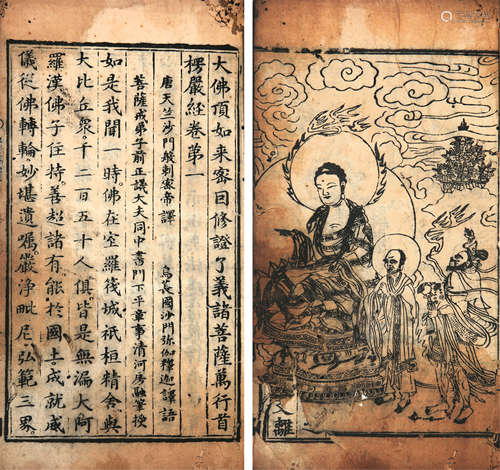 大佛頂如来密囙修證了義諸菩薩萬行首
楞嚴經卷第一
唐天竺沙門般剌密帝譯
烏萇國沙門弥伽釋迦譯語
菩薩戒弟子前正議大夫同中書門下平章事清河房融筆授
如是我聞一時佛在室羅筏城祇桓精舍與
大比丘衆千二百五十人俱皆是無漏大阿
羅漢佛子住持善超諸有能於國土成就威
儀從佛轉輪妙堪遺囑嚴淨毗尼弘範三界
離